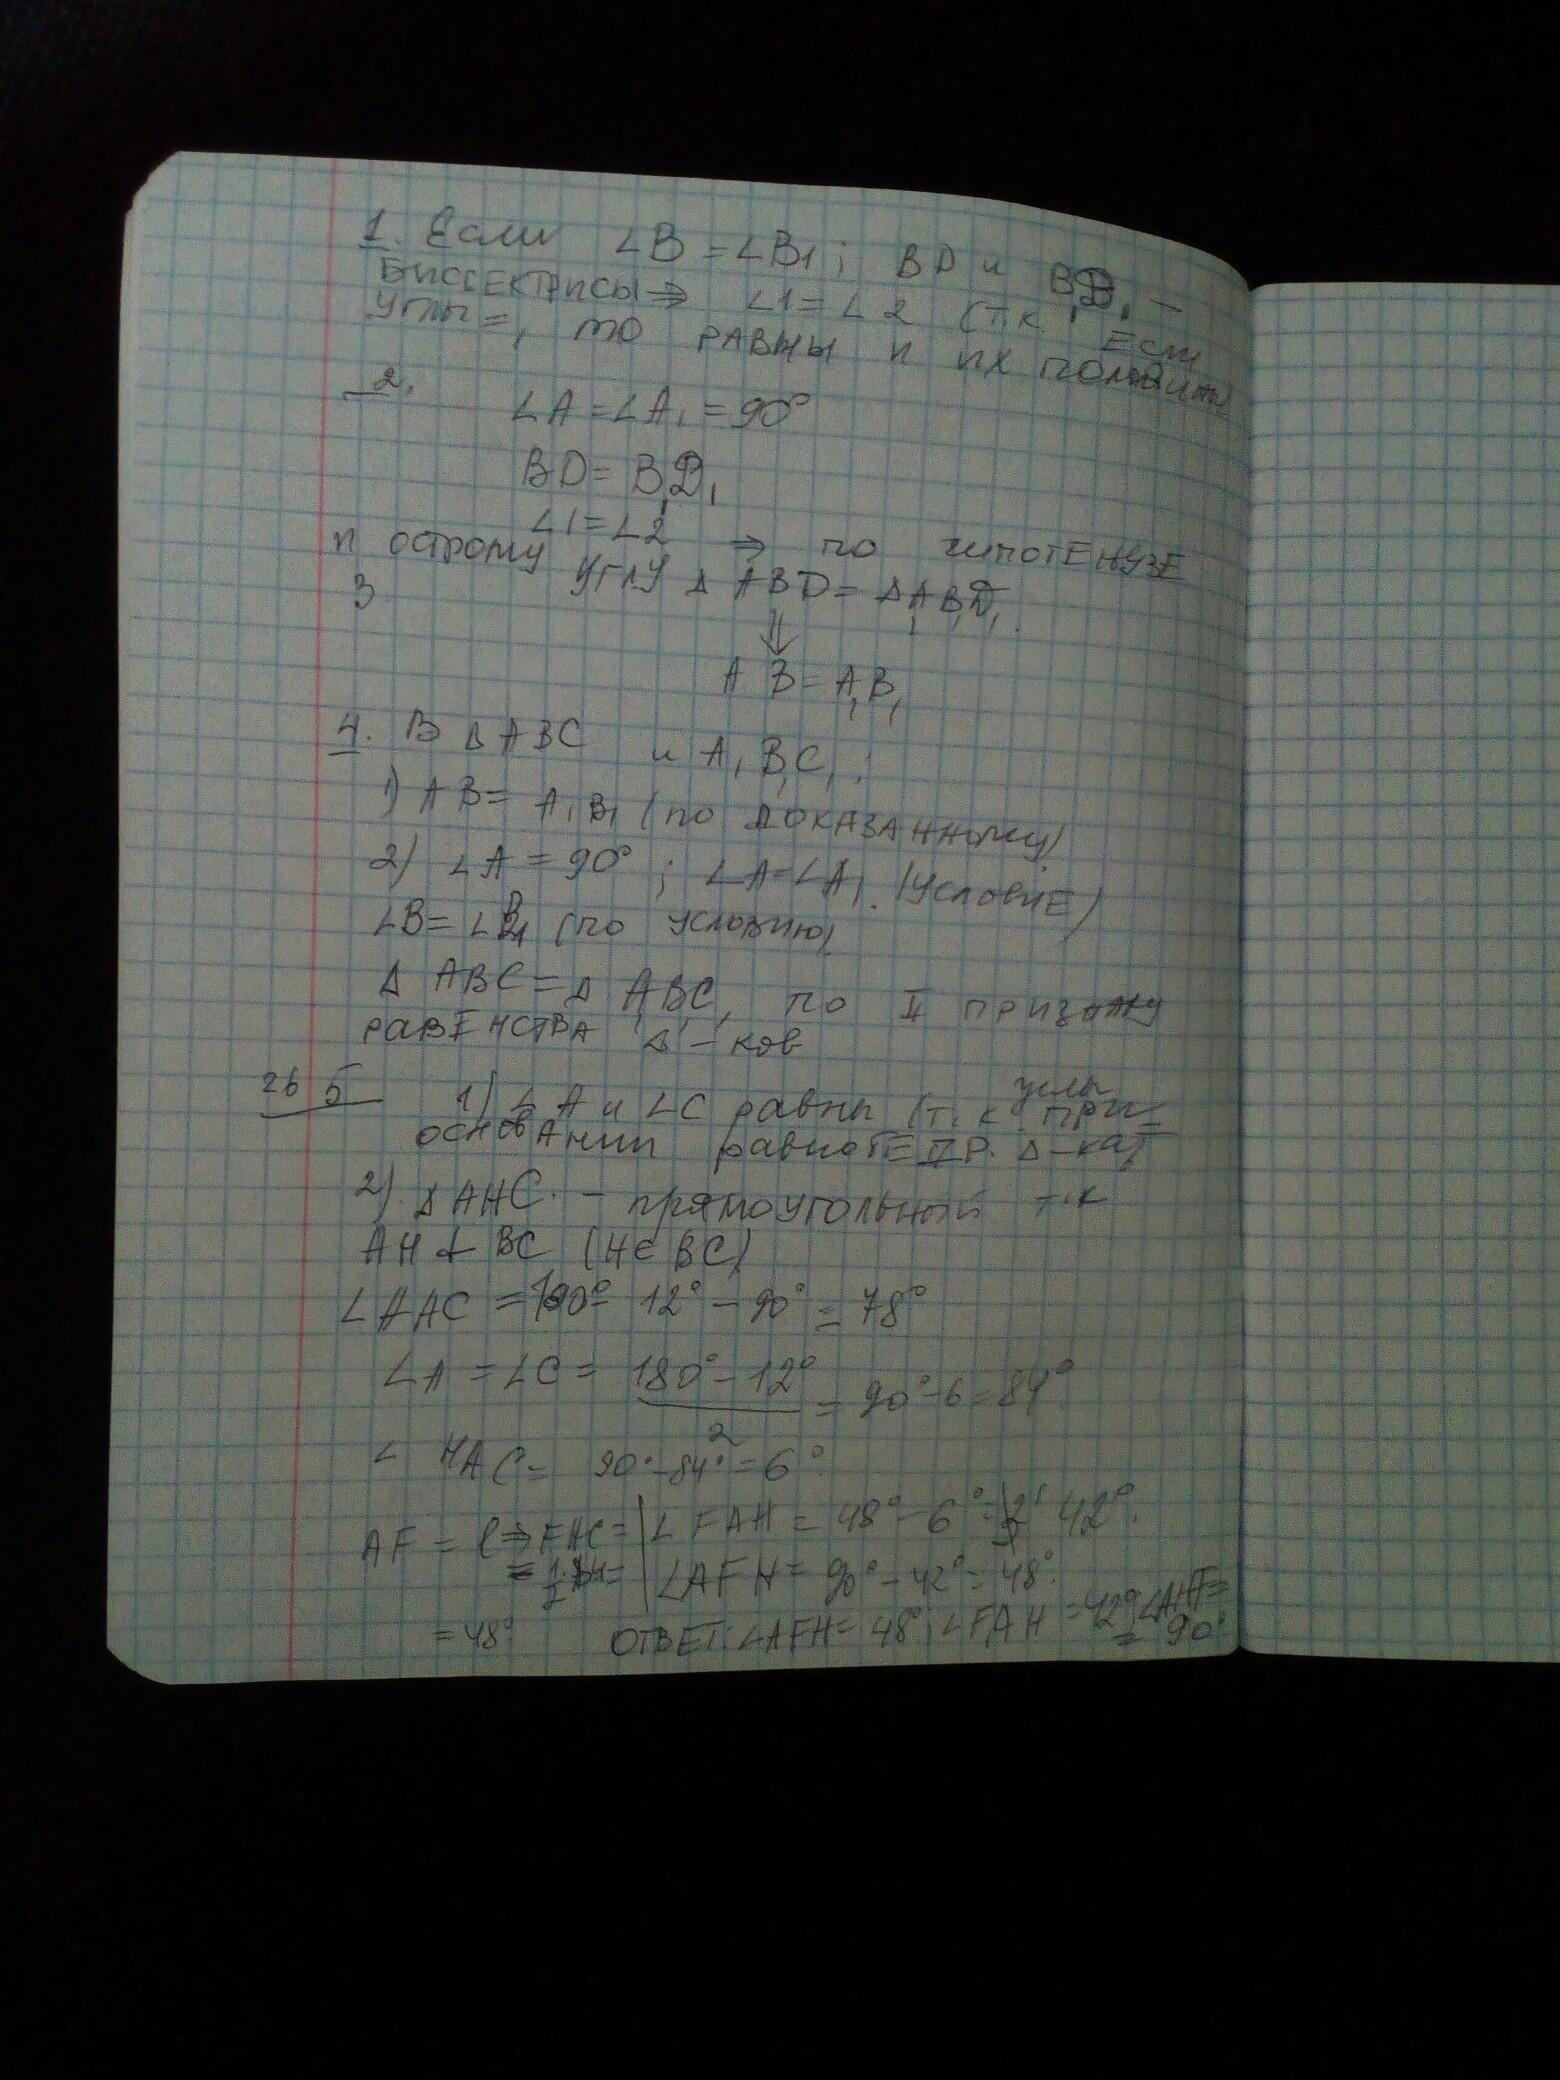 1. Если ∠B = ∠B1; BD и B1D1 —
БИССЕКТРИСЫ ⇒ ∠1 = ∠2 (т.к. ЕСЛИ
УГЛЫ =, ТО РАВНЫ И ИХ ПОЛОВИНЫ
2.
∠A = ∠A1 = 90°
BD = B1D1
∠1 = ∠2 ⇒ по гипотенузе
и острому углу Δ ABD = Δ A1B1D1
3
⇓
AB = A1B1
4. В Δ ABC и A1B1C1:
1) AB = A1B1 (по доказанному)
2) ∠A = 90°; ∠A = ∠A1 (условие)
∠B = ∠B1 (по условию)
Δ ABC = Δ A1B1C1 по II признаку
равенства Δ-ков
26 5 1) ∠A и ∠C равны (т.к. углы при =
основании Δ-ка)
2) Δ AHC - прямоугольный т.к
AH ⊥ BC (H ∈ BC)
12° - 90° = 78°
∠A = ∠C = 180° - 12° / 2 = 90° - 6 = 84°
∠ HAC = 90° - 84° = 6°.
∠ FAH = 48° - 6° = 42°.
∠AFH = 90° - 42° = 48°.
= 48°
ОТВЕТ: ∠AFH = 48°; ∠FAH = 42°; ∠AHF =
= 90°